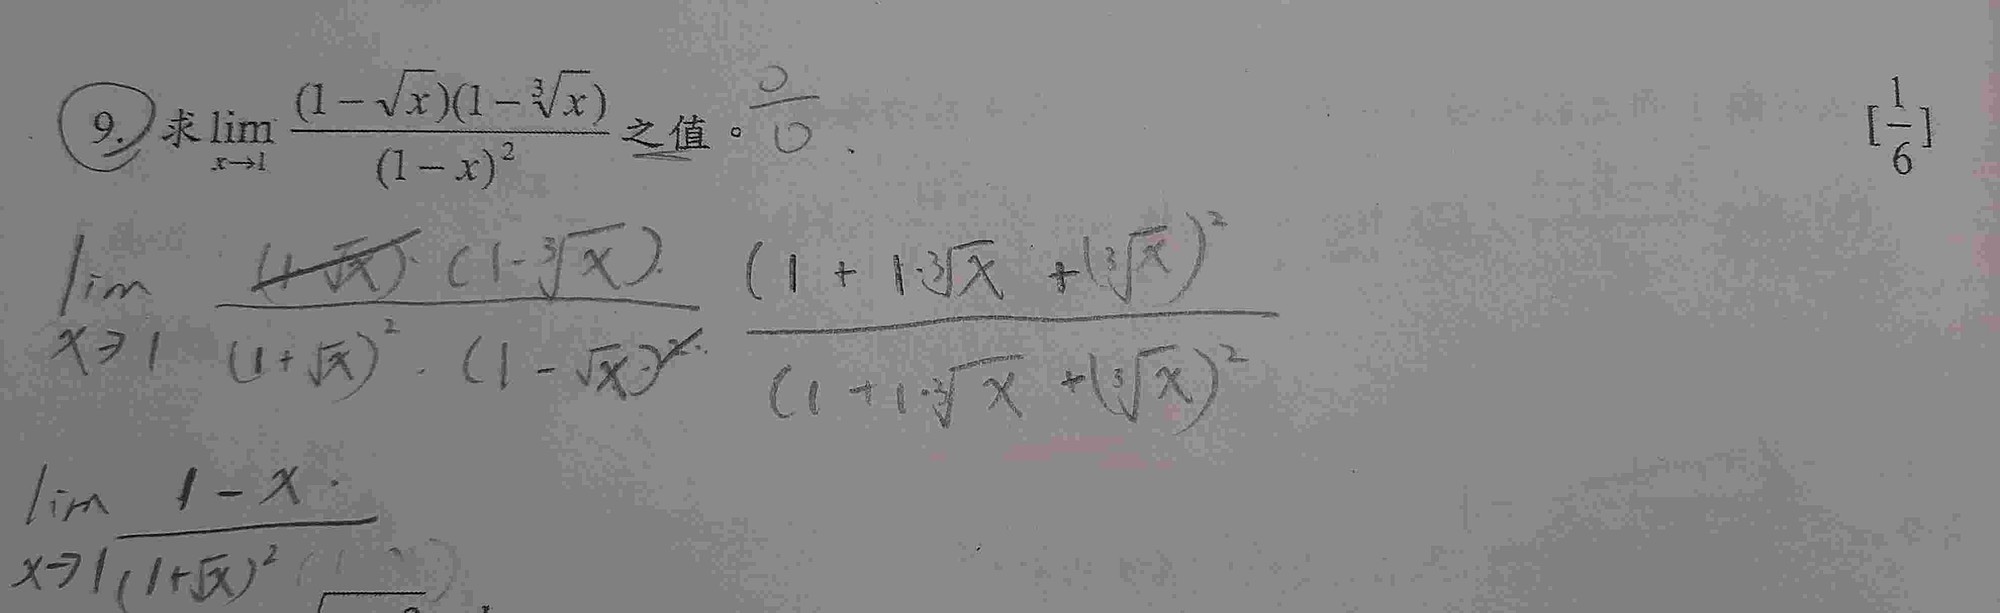 9. 求 lim x→1 (1-√x)(1-∛x) / (1-x)² 之值。 0/0 [1/6]
lim x→1 (1-√x)·(1-∛x)· / (1+√x)²·(1-√x)²· (1+1·∛x+(∛x)² / (1+1·∛x+(∛x)²
lim x→1 1-x· / (1+√x)²